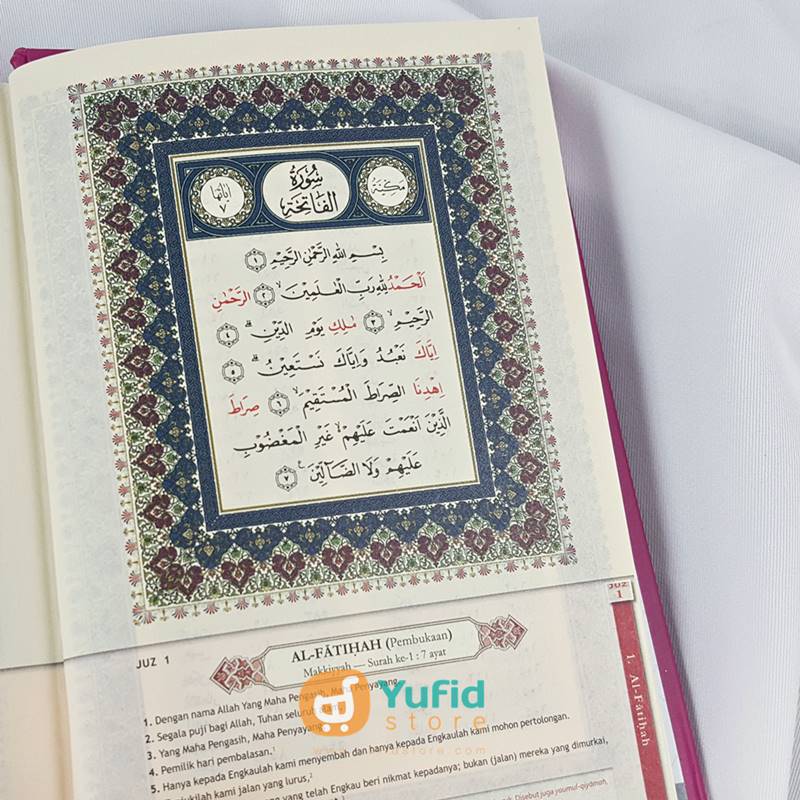 اٰيَاتُهَا ٧
سُوْرَةُ الْفَاتِحَةِ
مَكِّيَّةٌ
بِسْمِ اللّٰهِ الرَّحْمٰنِ الرَّحِيْمِ ١
اَلْحَمْدُ لِلّٰهِ رَبِّ الْعٰلَمِيْنَۙ ٢ الرَّحْمٰنِ
الرَّحِيْمِۙ ٣ مٰلِكِ يَوْمِ الدِّيْنِۗ ٤
اِيَّاكَ نَعْبُدُ وَاِيَّاكَ نَسْتَعِيْنُۗ ٥
اِهْدِنَا الصِّرَاطَ الْمُسْتَقِيْمَۙ ٦ صِرَاطَ
الَّذِيْنَ اَنْعَمْتَ عَلَيْهِمْ ەۙ غَيْرِ الْمَغْضُوْبِ
عَلَيْهِمْ وَلَا الضَّاۤلِّيْنَ ࣖ ٧
JUZ
1
1. Al-Fātiḥah
JUZ 1
AL-FĀTIḤAH (Pembukaan)
Makkiyyah — Surah ke-1 : 7 ayat
1. Dengan nama Allah Yang Maha Pengasih, Maha Penyayang.
2. Segala puji bagi Allah, Tuhan seluruh
3. Yang Maha Pengasih, Maha Penyayang
4. Pemilik hari pembalasan.¹
5. Hanya kepada Engkaulah kami menyembah dan hanya kepada Engkaulah kami mohon pertolongan.
kami jalan yang lurus,²
yang telah Engkau beri nikmat kepadanya; bukan (jalan) mereka yang dimurkai,
Disebut juga yaumul-qiyāmah,
Yufid
store